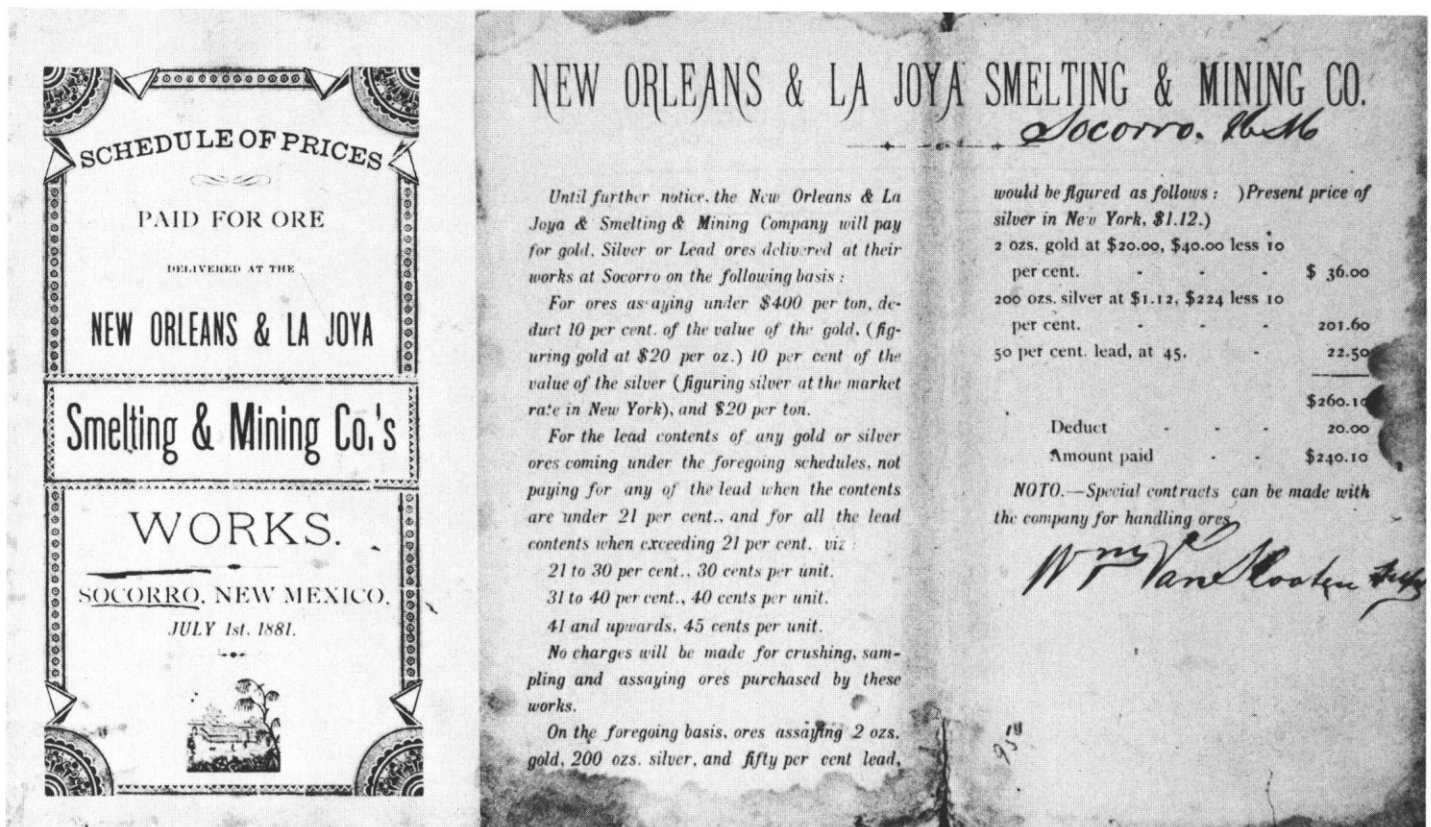 SCHEDULE OF PRICES
PAID FOR ORE
DELIVERED AT THE
NEW ORLEANS & LA JOYA
Smelting & Mining Co.'s
WORKS.
SOCORRO, NEW MEXICO,
JULY 1st. 1881.
NEW ORLEANS & LA JOYA SMELTING & MINING CO.
Socorro. N.M
Until further notice, the New Orleans & La
Joya & Smelting & Mining Company will pay
for gold, Silver or Lead ores delivered at their
works at Socorro on the following basis :
For ores assaying under $400 per ton, de-
duct 10 per cent. of the value of the gold, (fig-
uring gold at $20 per oz.) 10 per cent of the
value of the silver (figuring silver at the market
rate in New York), and $20 per ton.
For the lead contents of any gold or silver
ores coming under the foregoing schedules, not
paying for any of the lead when the contents
are under 21 per cent., and for all the lead
contents when exceeding 21 per cent. viz :
21 to 30 per cent., 30 cents per unit.
31 to 40 per cent., 40 cents per unit.
41 and upwards, 45 cents per unit.
No charges will be made for crushing, sam-
pling and assaying ores purchased by these
works.
On the foregoing basis, ores assaying 2 ozs.
gold, 200 ozs. silver, and fifty per cent lead,
would be figured as follows : )Present price of
silver in New York, $1.12.)
2 ozs. gold at $20.00, $40.00 less 10
per cent. - - - $ 36.00
200 ozs. silver at $1.12, $224 less 10
per cent. - - - 201.60
50 per cent. lead, at 45, - 22.50
$260.10
Deduct - - - 20.00
Amount paid - - $240.10
NOTO.—Special contracts can be made with
the company for handling ores
Wm Van Slooten